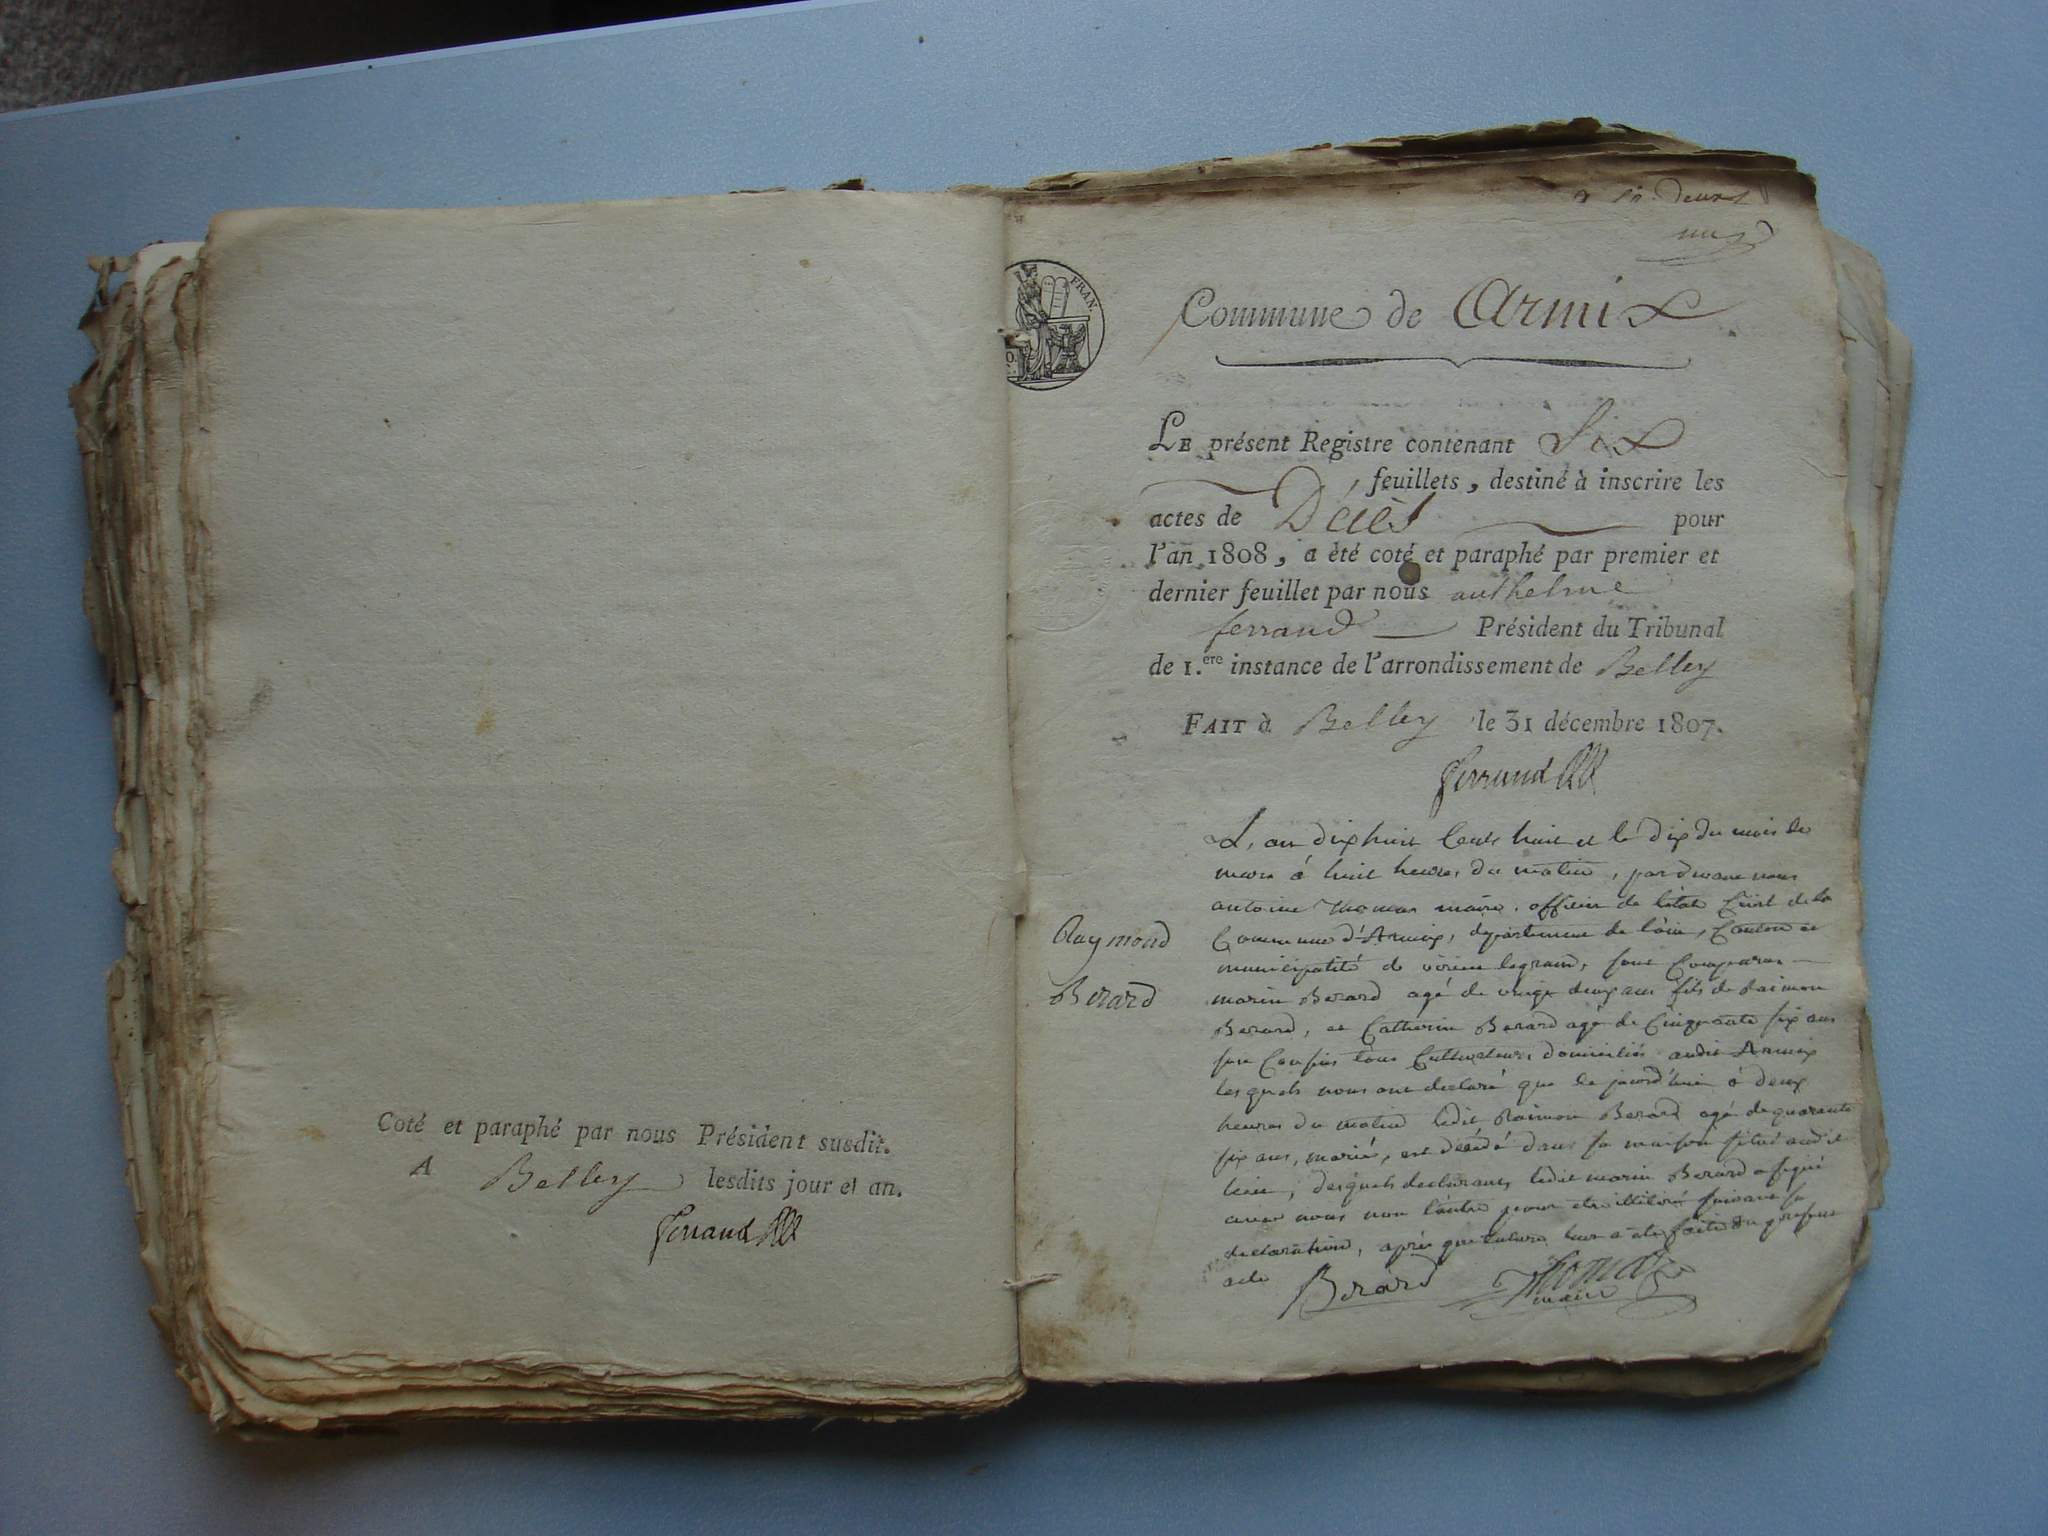 Coté et paraphé par nous Président susdit.
A Belley lesdits jour et an.
Ferrand
deux
FRAN.
Commune de Armix
LE présent Registre contenant Six
feuillets, destiné à inscrire les
actes de Décès pour
l'an 1808, a été coté et paraphé par premier et
dernier feuillet par nous anthelme
ferrand Président du Tribunal
de 1.ere instance de l'arrondissement de Belley
FAIT à Belley le 31 décembre 1807.
Ferrand
Raymond
Berard
L'an dix huit Cents huit et le dix du mois de
mars à huit heures du matin, pardevant nous
antoine Thomas maire, officier de létat Civil de la
Commune d'Armix, département de lain, Canton et
municipalité de virieu legrand, sont Comparus
marin Berard agé de vingt deux ans fils de Raimon
Berard, et Catherin Berard agé de Cinquante six ans
son Cousin tous Cultivateurs domiciliés audit Armix
lesquels nous ont declaré que le jourd'hui à deux
heures du matin ledit Raimon Berard agé de quarante
six ans, marié, est décédé dans sa maison situé audit
lieu, desquels declarants ledit marin Berard a signé
avec nous non lautre pour etre illitéré suivant sa
declaration, après que lecture leur a été faite du present
acte
Berard
Thomas
maire